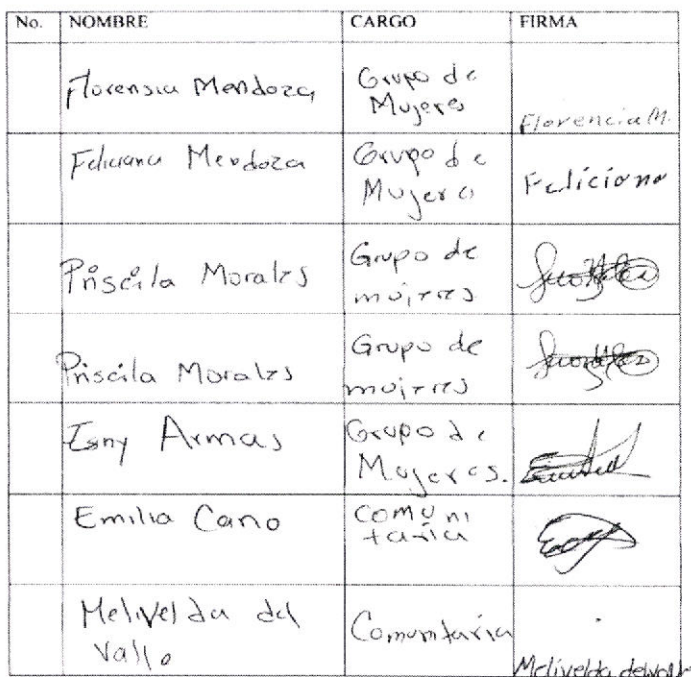 No. NOMBRE CARGO FIRMA
Florensia Mendoza Grupo de Mujeres Florencia M.
Feliciana Mendoza Grupo de Mujeres Feliciana
Priscila Morales Grupo de mujeres
Priscila Morales Grupo de mujeres
Esny Armas Grupo de Mujeres.
Emilia Cano Comunitaria
Melivelda del Valle Comunitaria Melivelda del Valle